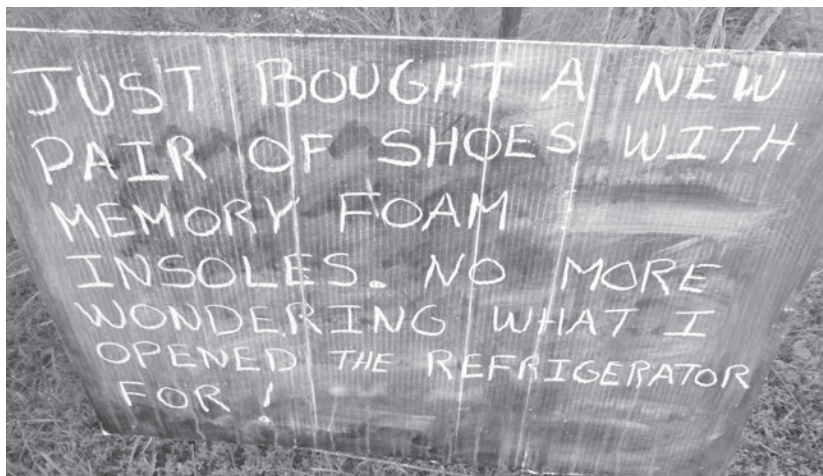 JUST BOUGHT A NEW
PAIR OF SHOES WITH
MEMORY FOAM
INSOLES. NO MORE
WONDERING WHAT I
OPENED THE REFRIGERATOR
FOR!